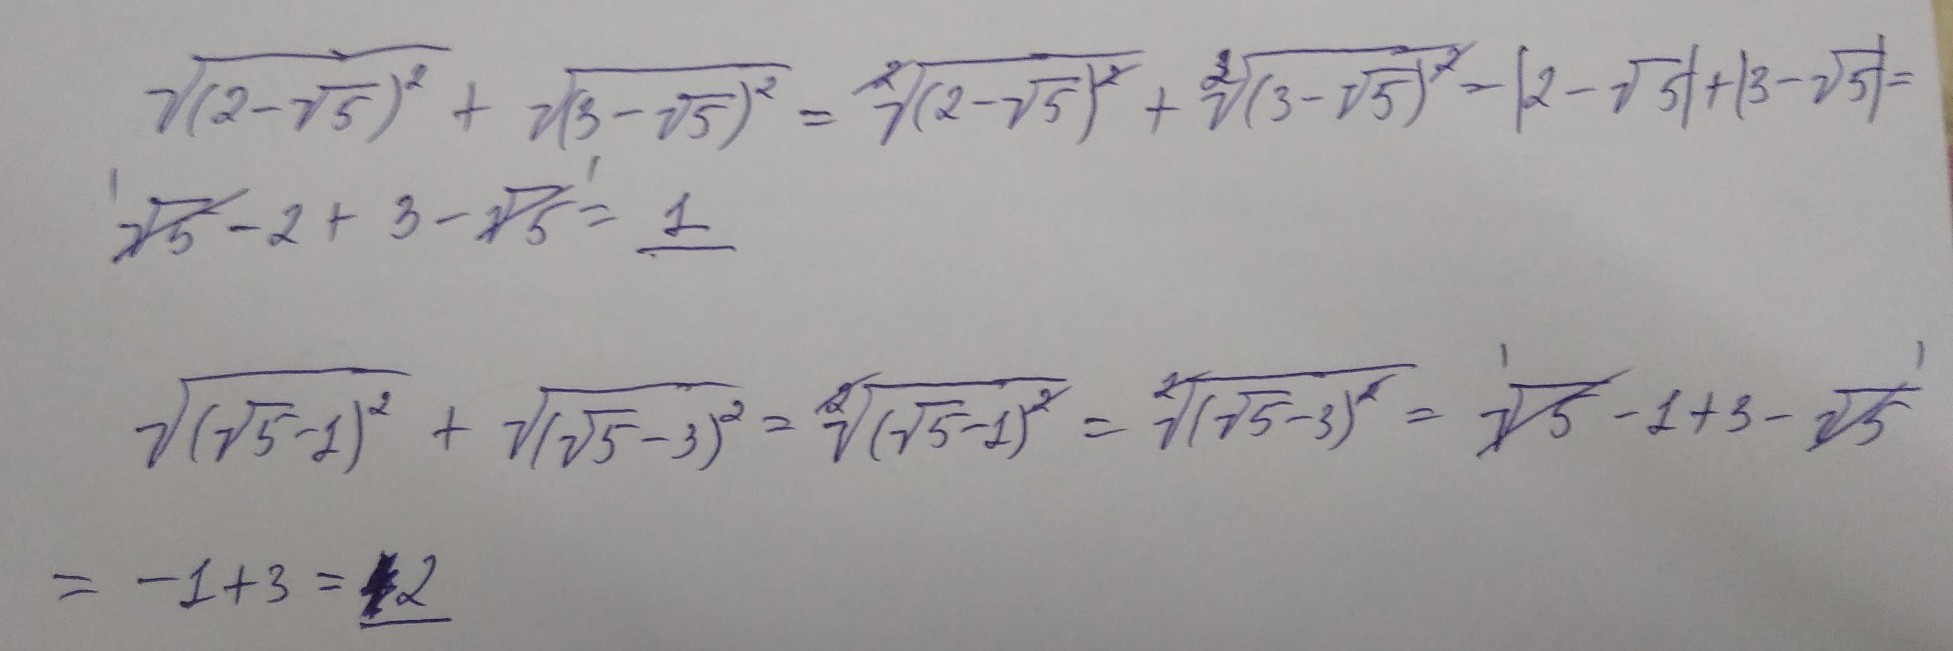 √(2-√5)² + √(3-√5)² = ²√(2-√5)² + ²√(3-√5)² = |2-√5|+|3-√5|=
√5-2+3-√5 = 1
√(√5-1)² + √(√5-3)² = ²√(√5-1)² = ²√(√5-3)² = √5-1+3-√5
= -1+3 = 2